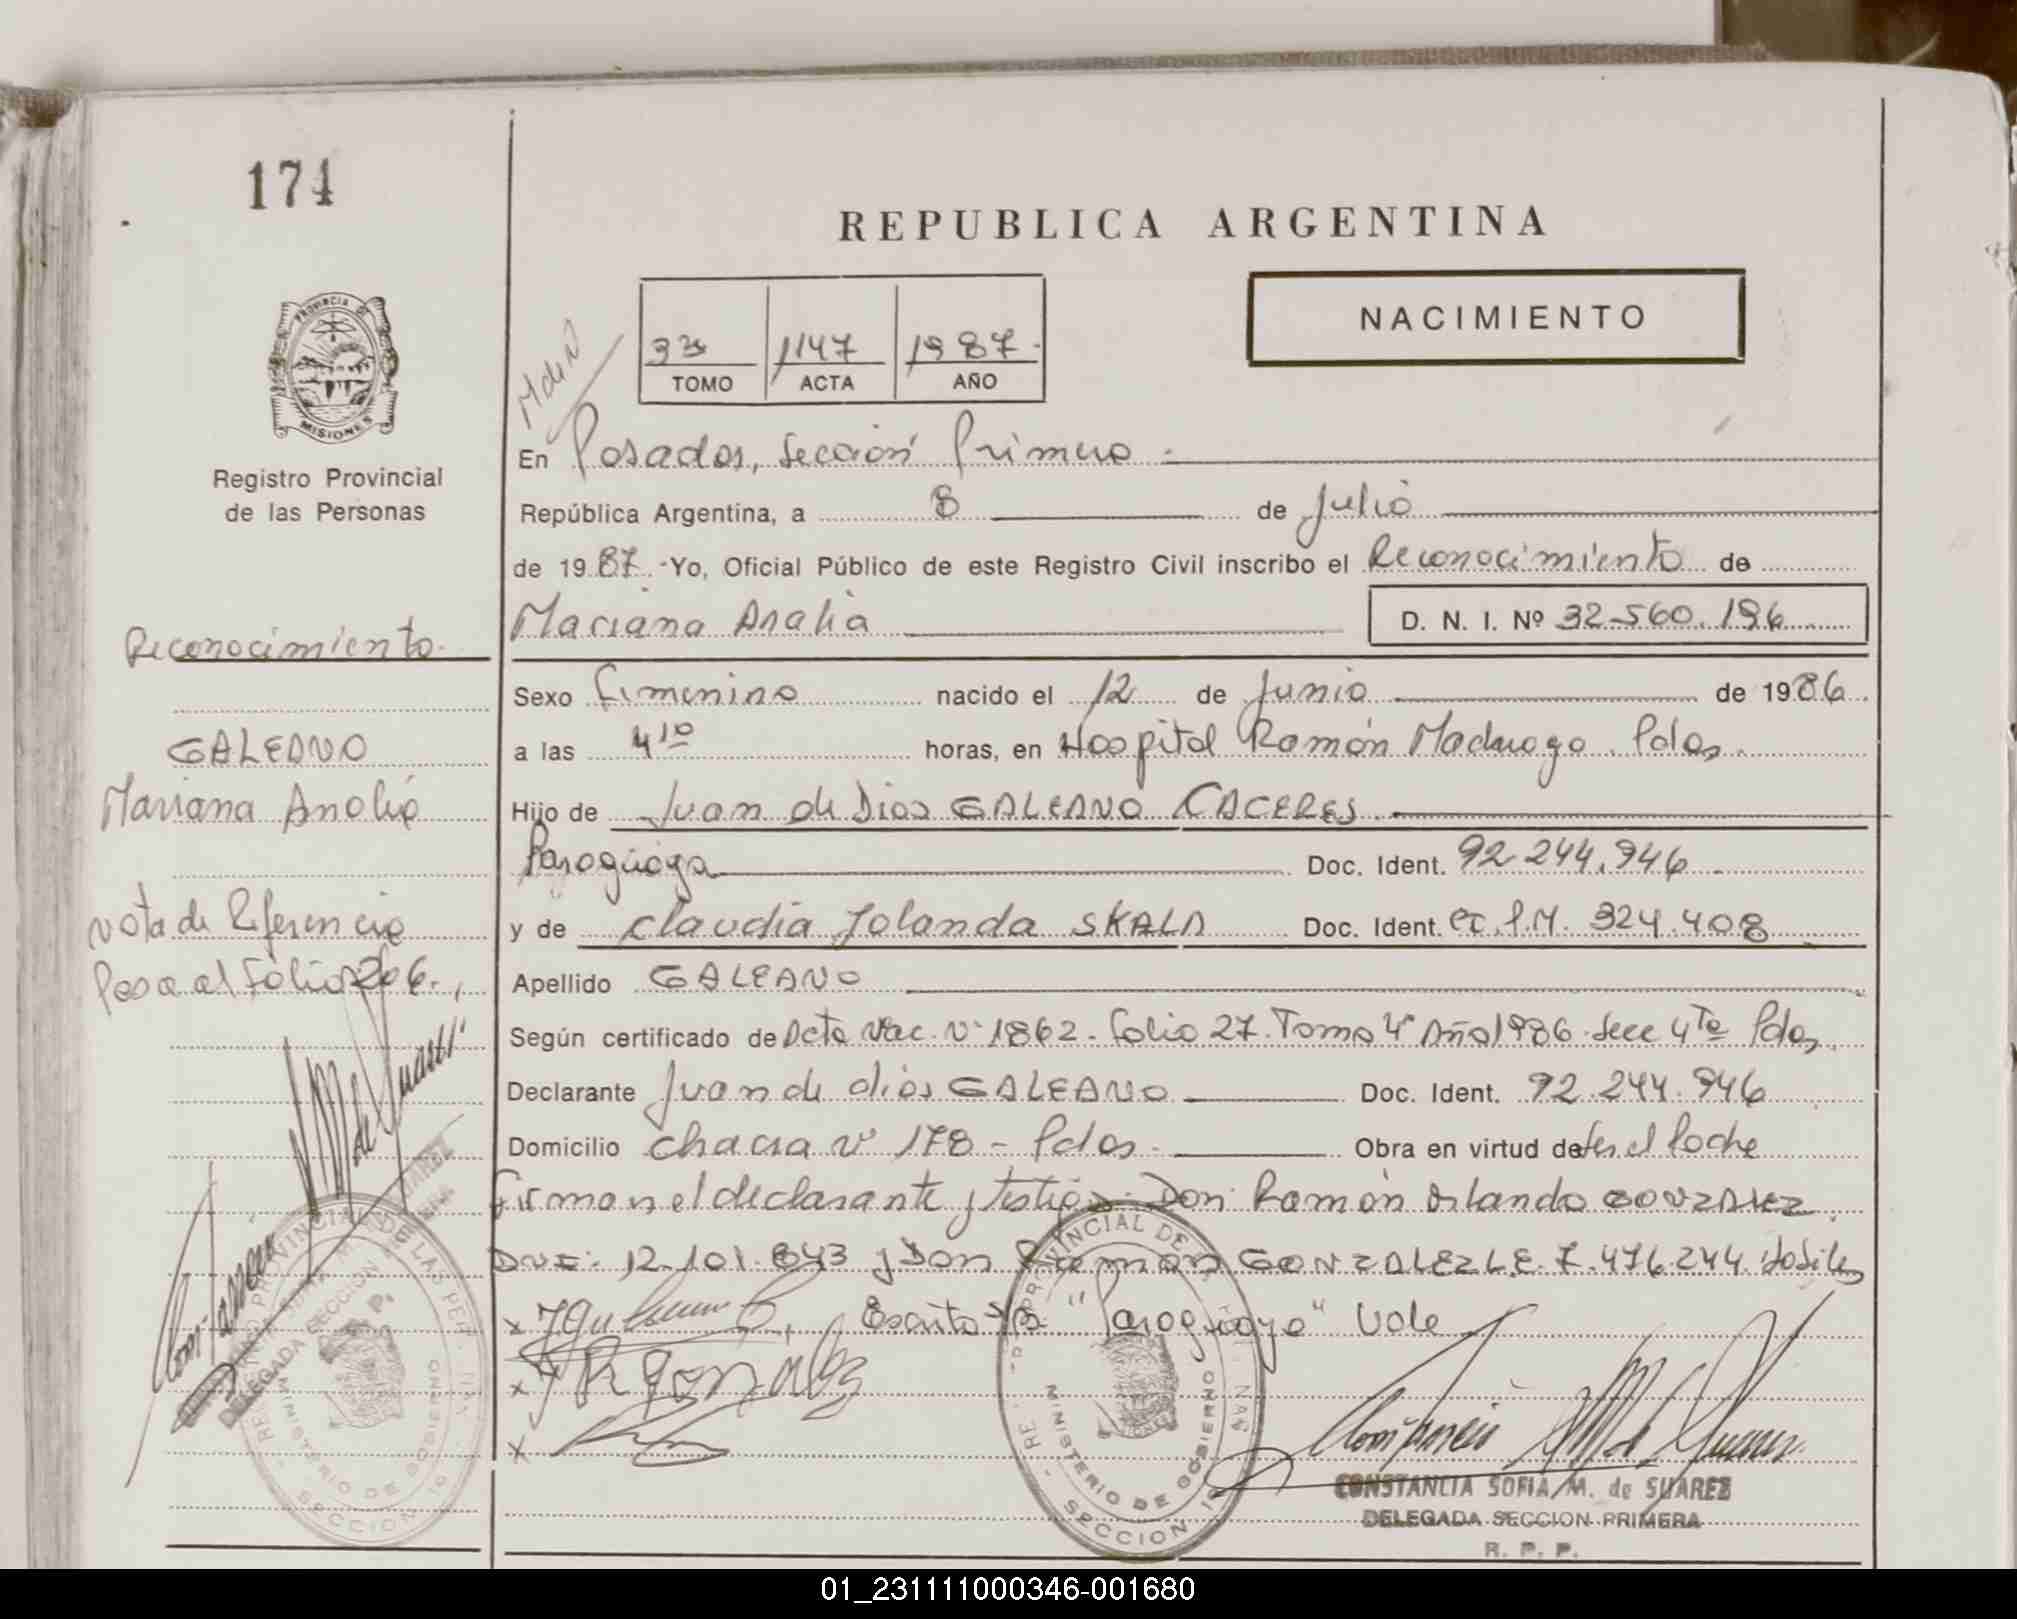 174
REPUBLICA ARGENTINA
NACIMIENTO
1147 1987.
TOMO ACTA AÑO
PROVINCIA DE
MISIONES
Registro Provincial
de las Personas
En Posadas, Sección Primera.
República Argentina, a 8 de Julio
de 1987.-Yo, Oficial Público de este Registro Civil inscribo el Reconocimiento de
Mariana Analia D. N. I. Nº 32.560.196
Sexo Femenino nacido el 12 de Junio de 1986
a las 4 10 horas, en Hospital Ramón Madariaga. Pdas.
Hijo de Juan de Dios GALEANO CACERES.
Paraguaya Doc. Ident. 92.244.946
y de Claudia Yolanda SKALA Doc. Ident. 324.408
Apellido GALEANO
Según certificado de Acta Nac. Nº 1862. Folio 27. Tomo 4º Año 1986. Secc 4ta Pdas.
Declarante Juan de dios GALEANO Doc. Ident. 92.244.946
Domicilio chacra nº 178 - Pdas. Obra en virtud de ser el Padre
Firman el declarante y testigos. Don: Ramón Orlando GONZALEZ.
DNI: 12.101.843 y Don Ramón GONZALEZ L.E. 7.476.244. Hábiles
Escrito S/R "Paraguaya" Vale
Reconocimiento.
GALEANO
Mariana Analia
Nota de Referencia
Pasa al Folio 206.
DELEGADA SECCION
MINISTERIO DE GOBIERNO
SECCION 1ª
MINISTERIO DE GOBIERNO
SECCION 1ª
CONSTANCIA SOFIA M. de SUAREZ
DELEGADA SECCION PRIMERA
R. P. P.
01_231111000346-001680